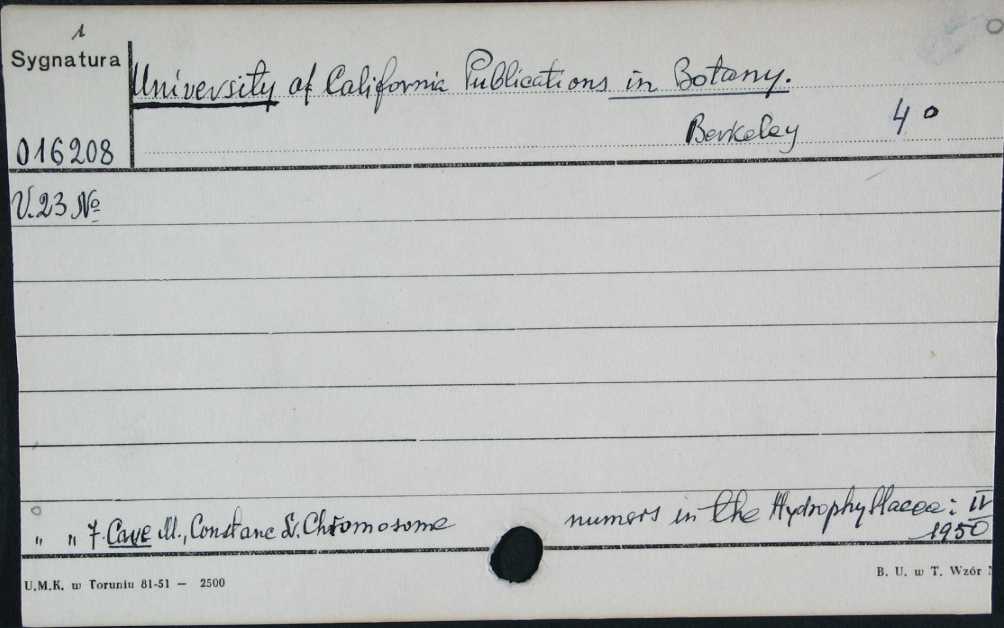 1
Sygnatura
University of California Publications in Botany.
Berkeley 4°
016208
V.23 №
" " 7. Cave M., Constanc L. Chromosome numers in the Hydrophyllacee: IV
1950
U.M.K. w Toruniu 81-51 — 2500
B. U. w T. Wzór